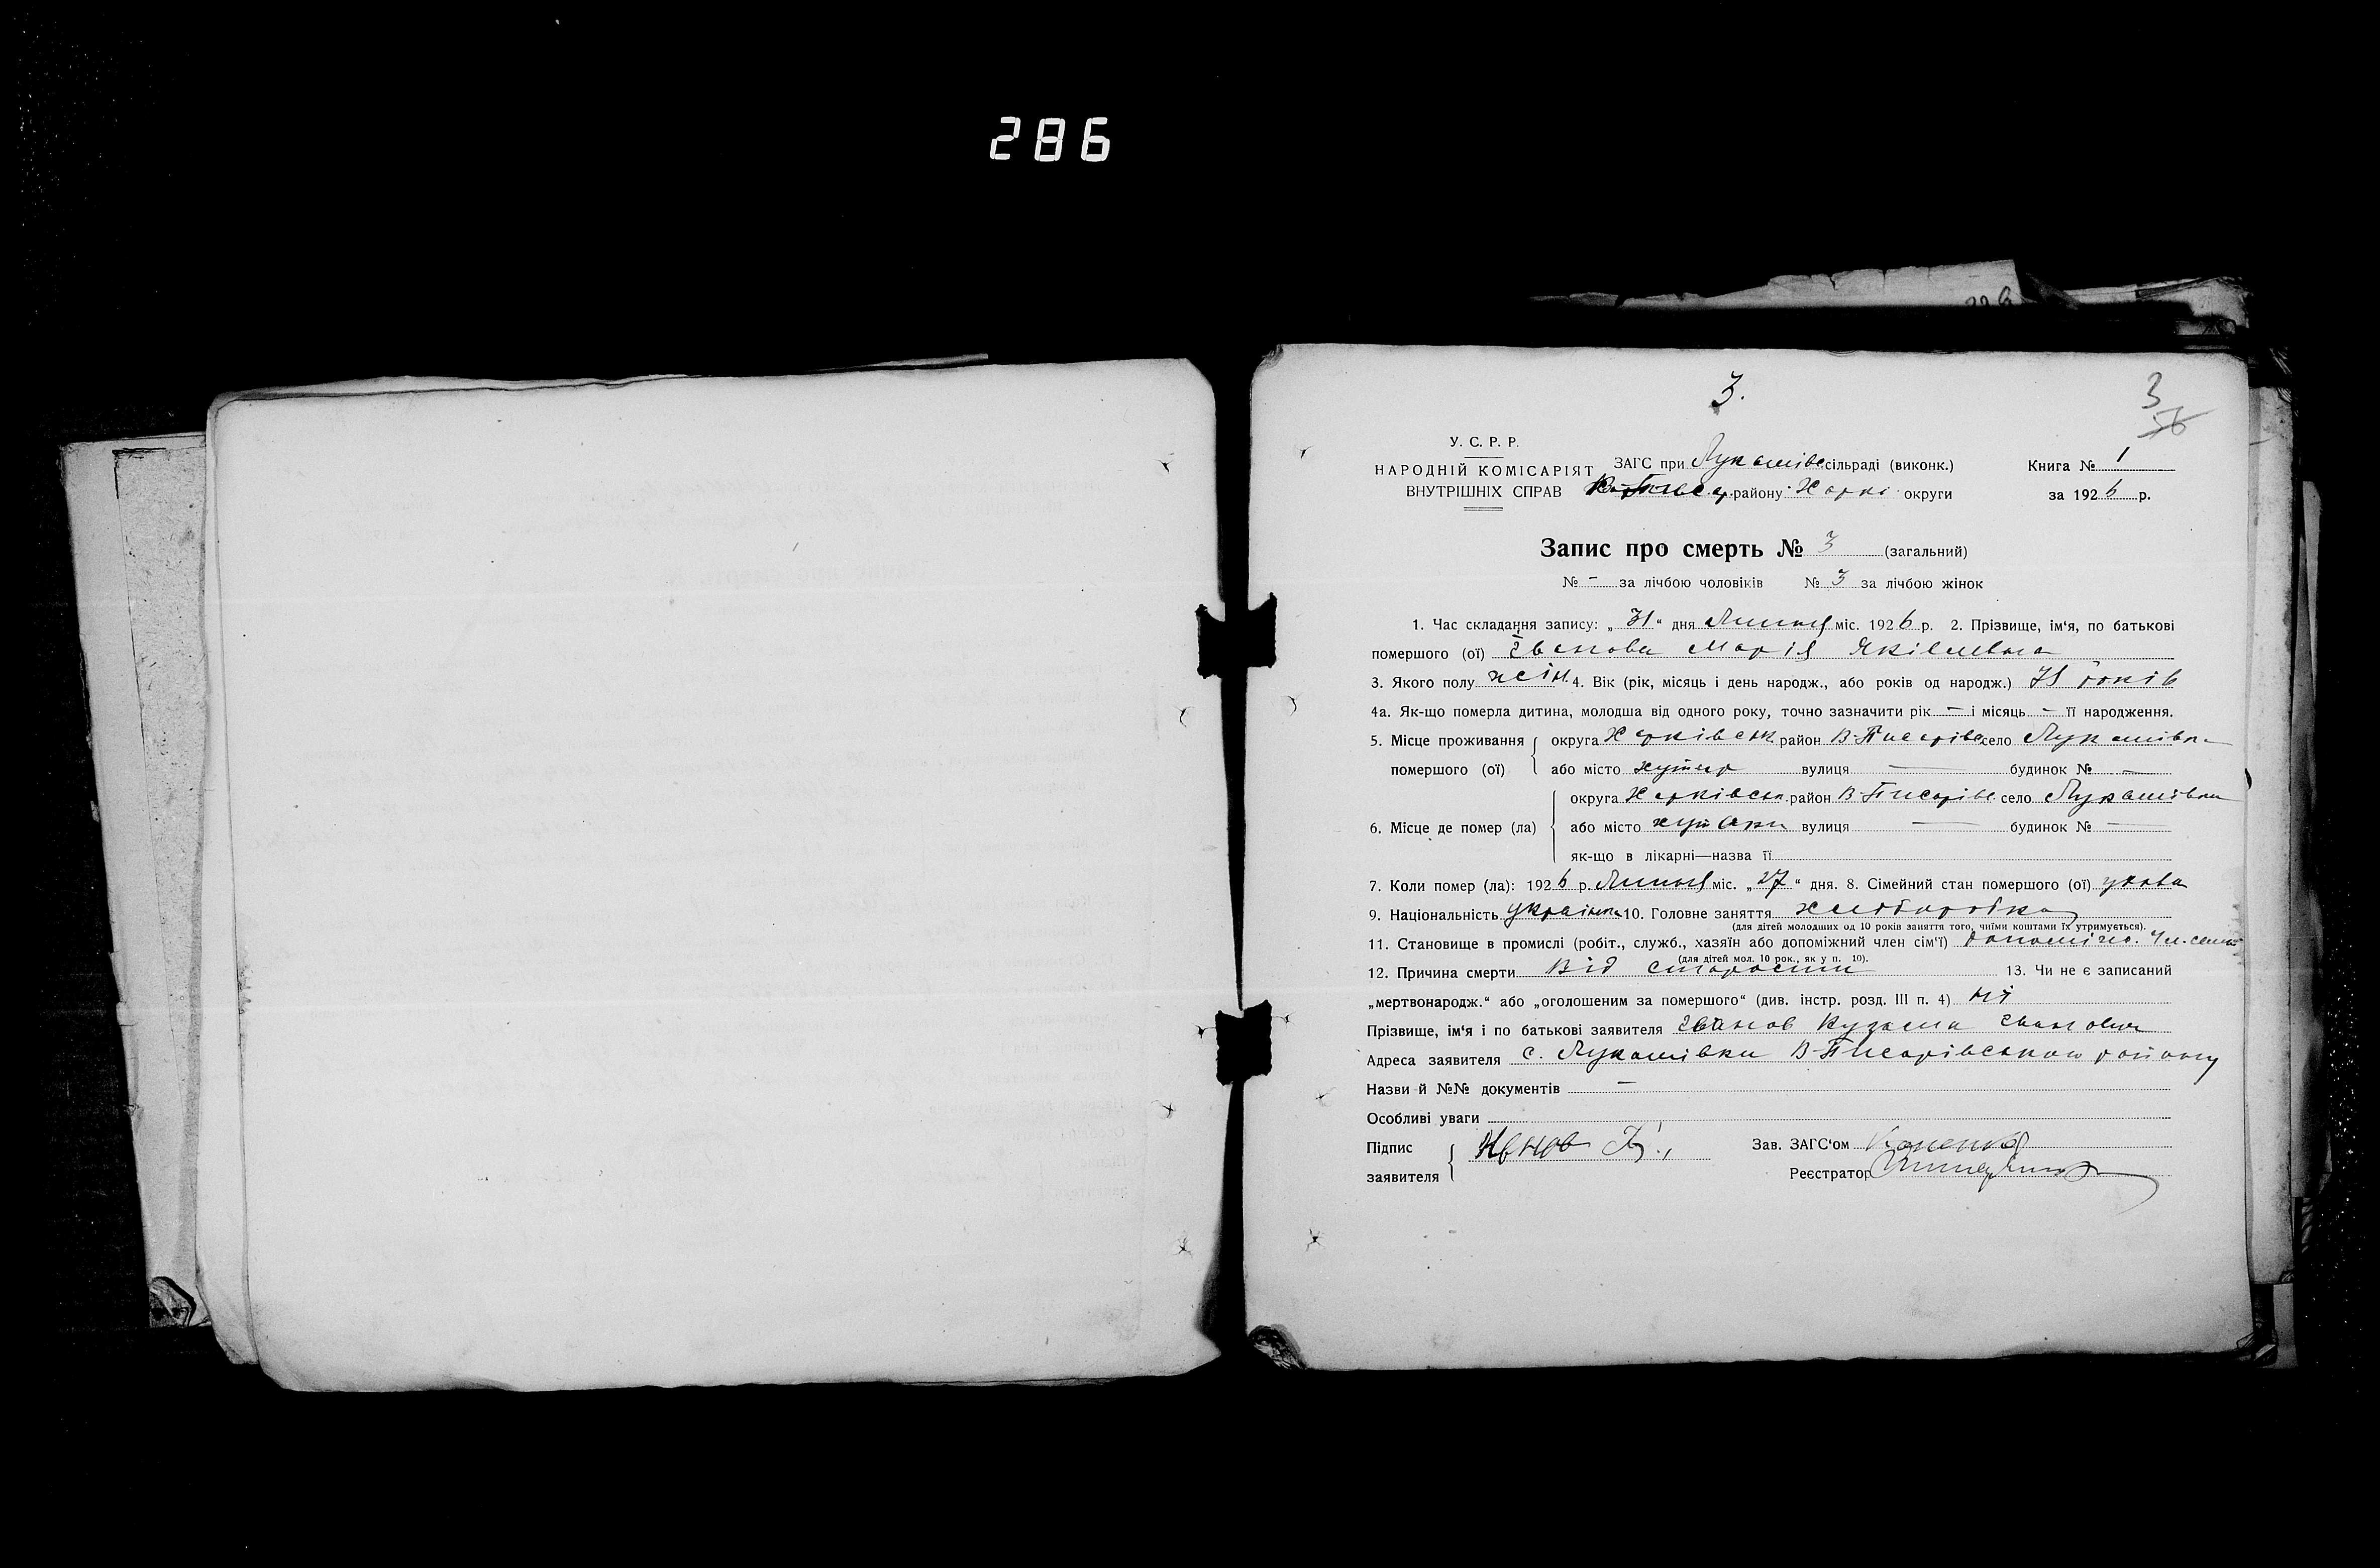 286
226
3.
3
56
У. С. Р. Р.
НАРОДНІЙ КОМІСАРІЯТ
ВНУТРІШНІХ СПРАВ
ЗАГС при Лукашівс сільраді (виконк.)
району Харкі округи
Книга № 1
за 1926 р.
Запис про смерть № 3 (загальний)
№ - за лічбою чоловіків № 3 за лічбою жінок
1. Час складання запису: „31“ дня Липня міс. 1926 р. 2. Прізвище, ім‘я, по батькові
помершого (ої) Іванова Марія Яківлевна
3. Якого полу жін. 4. Вік (рік, місяць і день народж., або років од народж.) років
4а. Як-що померла дитина, молодша від одного року, точно зазначити рік — і місяць — її народження.
5. Місце проживання округа Харківськ район В-Писарівс село Лукашівка
помершого (ої) або місто хутір вулиця — будинок № —
6. Місце де помер (ла) округа Харківськ. район В-Писарівс. село Лукашівка
або місто вулиця — будинок № —
як-що в лікарні—назва її
7. Коли помер (ла): 1926 р. Липня міс. „27“ дня. 8. Сімейний стан помершого (ої) удова
9. Національність українка 10. Головне заняття хліборобка
(для дітей молодших од 10 років заняття того, чиїми коштами їх утримується).
11. Становище в промислі (робіт., служб., хазяїн або допоміжний член сім‘ї) допоміжн. чл. семьї
(для дітей мол. 10 рок., як у п. 10).
12. Причина смерти Від старости 13. Чи не є записаний
„мертвонародж.“ або „оголошеним за помершого“ (див. інстр. розд. III п. 4) ні
Прізвище, ім‘я і по батькові заявителя Іванов Кузьма Іванович
Адреса заявителя с. Лукашівка В-Писарівського району
Назви й №№ документів —
Особливі уваги
Підпис
заявителя
Ивнов К.
Зав. ЗАГС‘ом
Реєстратор